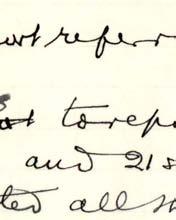 ort referr
to repo
and 21 s
ted all s